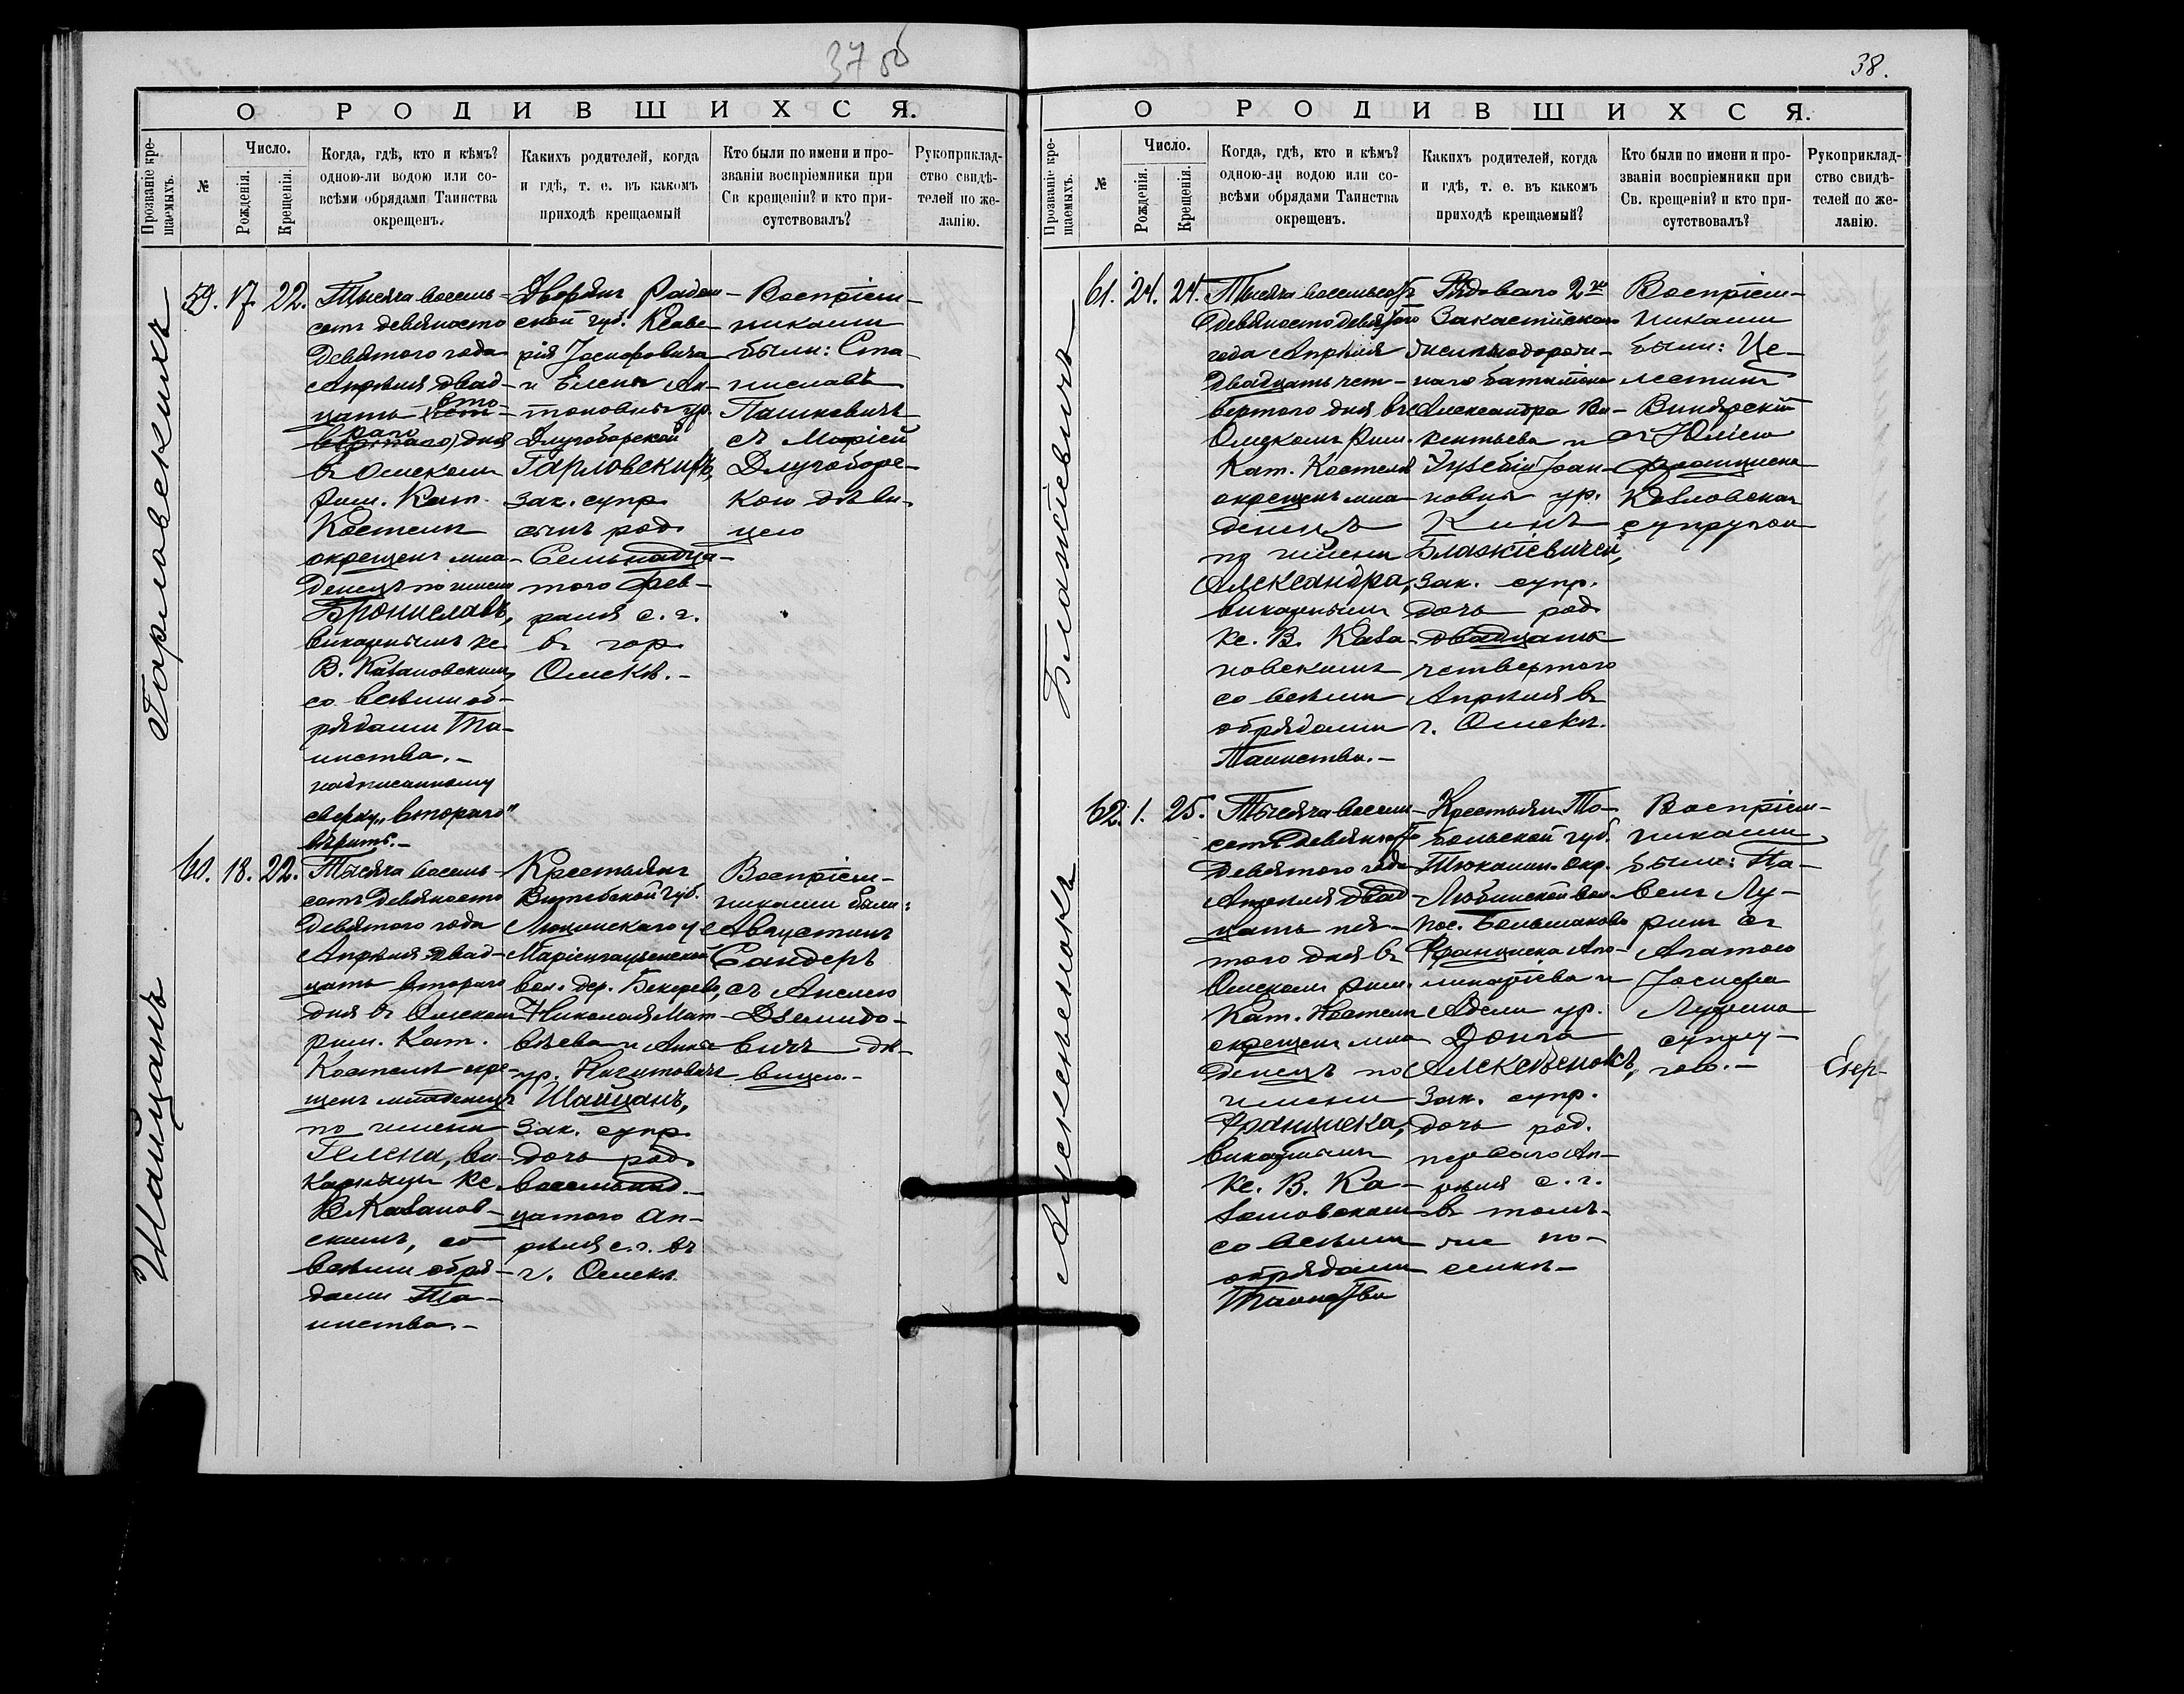 37 об
О РОДИВШИХСЯ.
Прозваніе кре-
щаемыхъ.
№
Число.
Рожденія.
Крещенія.
Когда, гдѣ, кто и кѣмъ?
одною-ли водою или со-
всѣми обрядами Таинства
окрещенъ.
Какихъ родителей, когда
и гдѣ, т. е. въ какомъ
приходѣ крещаемый
Кто были по имени и про-
званіи воспріемники при
Св крещеніи? и кто при-
сутствовалъ?
Рукоприклад-
ство свидѣ-
телей по же-
ланію.
Гарловскихъ
59. 17. 22.
Тысяча восемь-
сотъ девяносто
Девятого года
Апрѣля двад-
цать вто
раго дня
въ Омскомъ
рим. Кат.
Костелѣ
окрещенъ мла-
денецъ по имени
Брониславъ,
викарнымъ кс.
В. Казановскимъ
со всѣми об-
рядами Та-
инства.-
надписанному
сверху "втораго"
вѣрить.-
Дворянъ Радом-
ской губ. Ксаве-
рія Іосифовича
и Елены Ан-
тоновны ур.
Длугоборской
Гарловскихъ,
зак. супр.
сынъ род.
Семьнадца-
того Фев-
раля с. г.
въ гор.
Омскѣ.-
Воспріем-
никами
были: Ста-
ниславъ
Пашкевичъ
съ Маріей
Длугоборс-
кою дѣви-
цею
Шайцанъ
60. 18. 22.
Тысяча восемь-
сотъ Девяносто
Девятого года
Апрѣля двад-
цать втораго
дня въ Омскомъ
рим. Кат.
Костелѣ окре-
щенъ младенецъ
по имени
Гелена, ви-
карнымъ Кс.
В. Казанов-
скимъ, со
всѣми обря-
дами Та-
инства.-
Крестьянъ
Витебской губ.
Люцинскаго у
Маріенгаузенской
вол. дер. Бекерево,
Николая Мат-
вѣева и Анны
ур.
Шайцанъ,
Зак. супр.
дочь род.
восемьнад-
цатого Ап-
рѣля с. г. въ
г. Омскѣ.
Воспріем-
никами были:
Августинъ
Сандеръ
съ Анелею
Дземидо-
вичъ дѣ-
вицею.-
38.
О РОДИВШИХСЯ.
Прозваніе кре-
щаемыхъ.
№
Число.
Рожденія.
Крещенія.
Когда, гдѣ, кто и кѣмъ?
одною-ли водою или со-
всѣми обрядами Таинства
окрещенъ.
Какихъ родителей, когда
и гдѣ, т. е. въ какомъ
приходѣ крещаемый?
Кто были по имени и про-
званіи воспріемники при
Св. крещеніи? и кто при-
сутствовалъ?
Рукоприклад-
ство свидѣ-
телей по же-
ланію.
Блажіевичъ
61. 24. 24.
Тысяча восемьсотъ
Девяносто девятого
года Апрѣля
двадцать чет-
вертого дня въ
Омскомъ рим.
Кат. Костелѣ
окрещенъ мла-
денецъ
по имени
Александра,
викарнымъ
Кс. В. Каза-
новскимъ
со всѣми
обрядами
Таинства.-
Рядоваго 2го
Закаспійскаго
желѣзнодорож-
наго батальона
Александра Ви-
кентьева и
Евзебіи Іоан-
новны ур.
Кинъ
Блажіевичей,
зак. супр.
дочь род.
двадцать
четвертого
Апрѣля въ
г. Омскѣ.
Воспріем-
никами
были: Це-
лестинъ
Винярскій
съ Юліею
Францишка
Козловскаго
супругою
Алексѣенокъ
62. 1. 25.
Тысяча восемь-
сотъ Девяносто
Девятого года
Апрѣля двад-
цать пя-
того дня въ
Омскомъ рим.
Кат. Костелѣ
окрещенъ мла-
денецъ по
имени
Франциска,
викарнымъ
Кс. В. Ка-
зановскимъ
со всѣми
обрядами
Таинства
Крестьянъ То-
больской губ.
Тюкалин. окр.
Любинской вол.
пос. Большакова
Франциска Апо-
линаріева и
Адели ур.
Донга
Алексѣенокъ,
Зак. супр.
дочь род.
перваго Ап-
рѣля с. г.
въ томъ-
же по-
селкѣ-
Воспріем-
никами
были: Па-
велъ Лу-
ринъ съ
Агатою
Іосифа
Лурина
супру-
гою.-